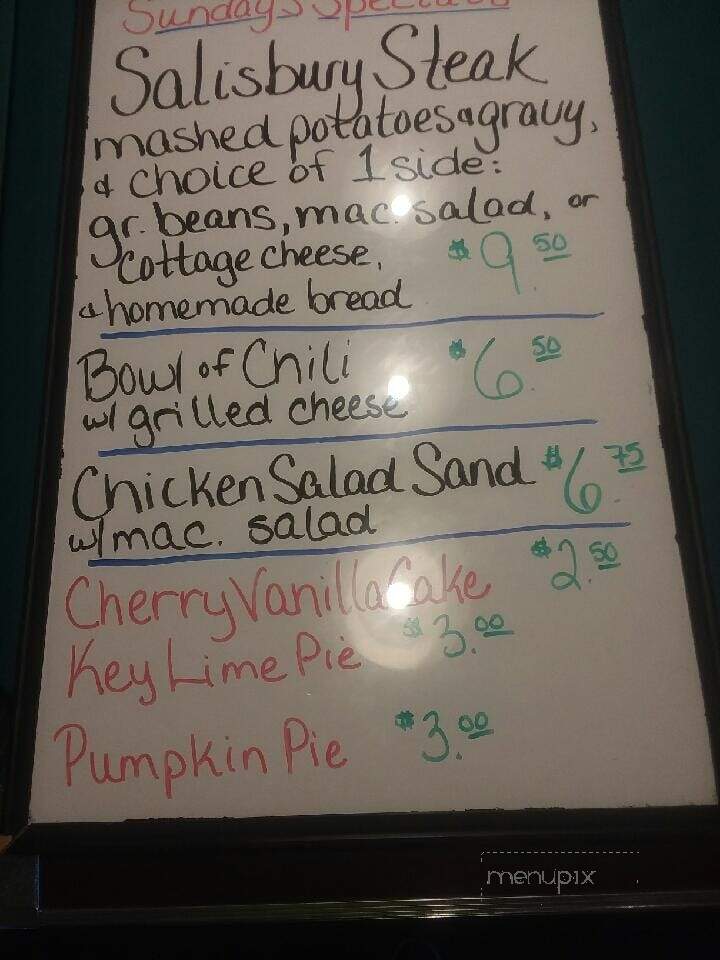 Sundays Specials
Salisbury Steak
mashed potatoes & gravy,
& choice of 1 side:
gr. beans, mac. salad, or
cottage cheese, $9.50
& homemade bread
Bowl of Chili $6.50
w/ grilled cheese
Chicken Salad Sand $6.75
w/ mac. salad
Cherry Vanilla Cake $2.50
Key Lime Pie $3.00
Pumpkin Pie $3.00
menupix